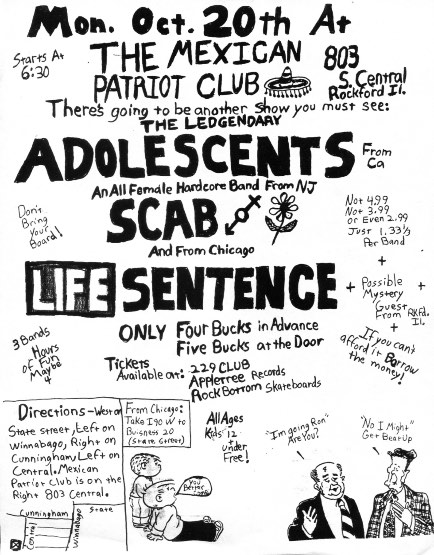 Mon. Oct. 20th At
Starts At
6:30
THE MEXICAN
PATRIOT CLUB
803
S. Central
Rockford Il.
There's going to be another show you must see:
THE LEDGENDARY
ADOLESCENTS
From
Ca
An All Female Hardcore Band From NJ
SCAB
Don't
Bring
Your
Board!
Not 4.99
Not 3.99
or Even 2.99
Just 1.33⅓
Per Band
And From Chicago
LIFE SENTENCE
+
+ Possible
Mystery
Guest
From RKFd.
Il.
+
If you can't
afford it Borrow
the money!
ONLY Four Bucks in Advance
Five Bucks at the Door
3 Bands
Hours
of Fun
Maybe
4
Tickets
Available at: 229 CLUB
Appletree Records
Rock Bottom Skateboards
Directions - West on
State street, Left on
Winnabago, Right on
Cunningham, Left on
Central. Mexican
Patriot Club is on the
Right 803 Central.
Cunningham
State
Central
Winnabago
From Chicago:
Take I90 W to
Buisness 20
(State Street)
All Ages
Kids 12
+
under
Free!
"I'm going Ron"
Are You?
"No I Might"
Get Beat Up